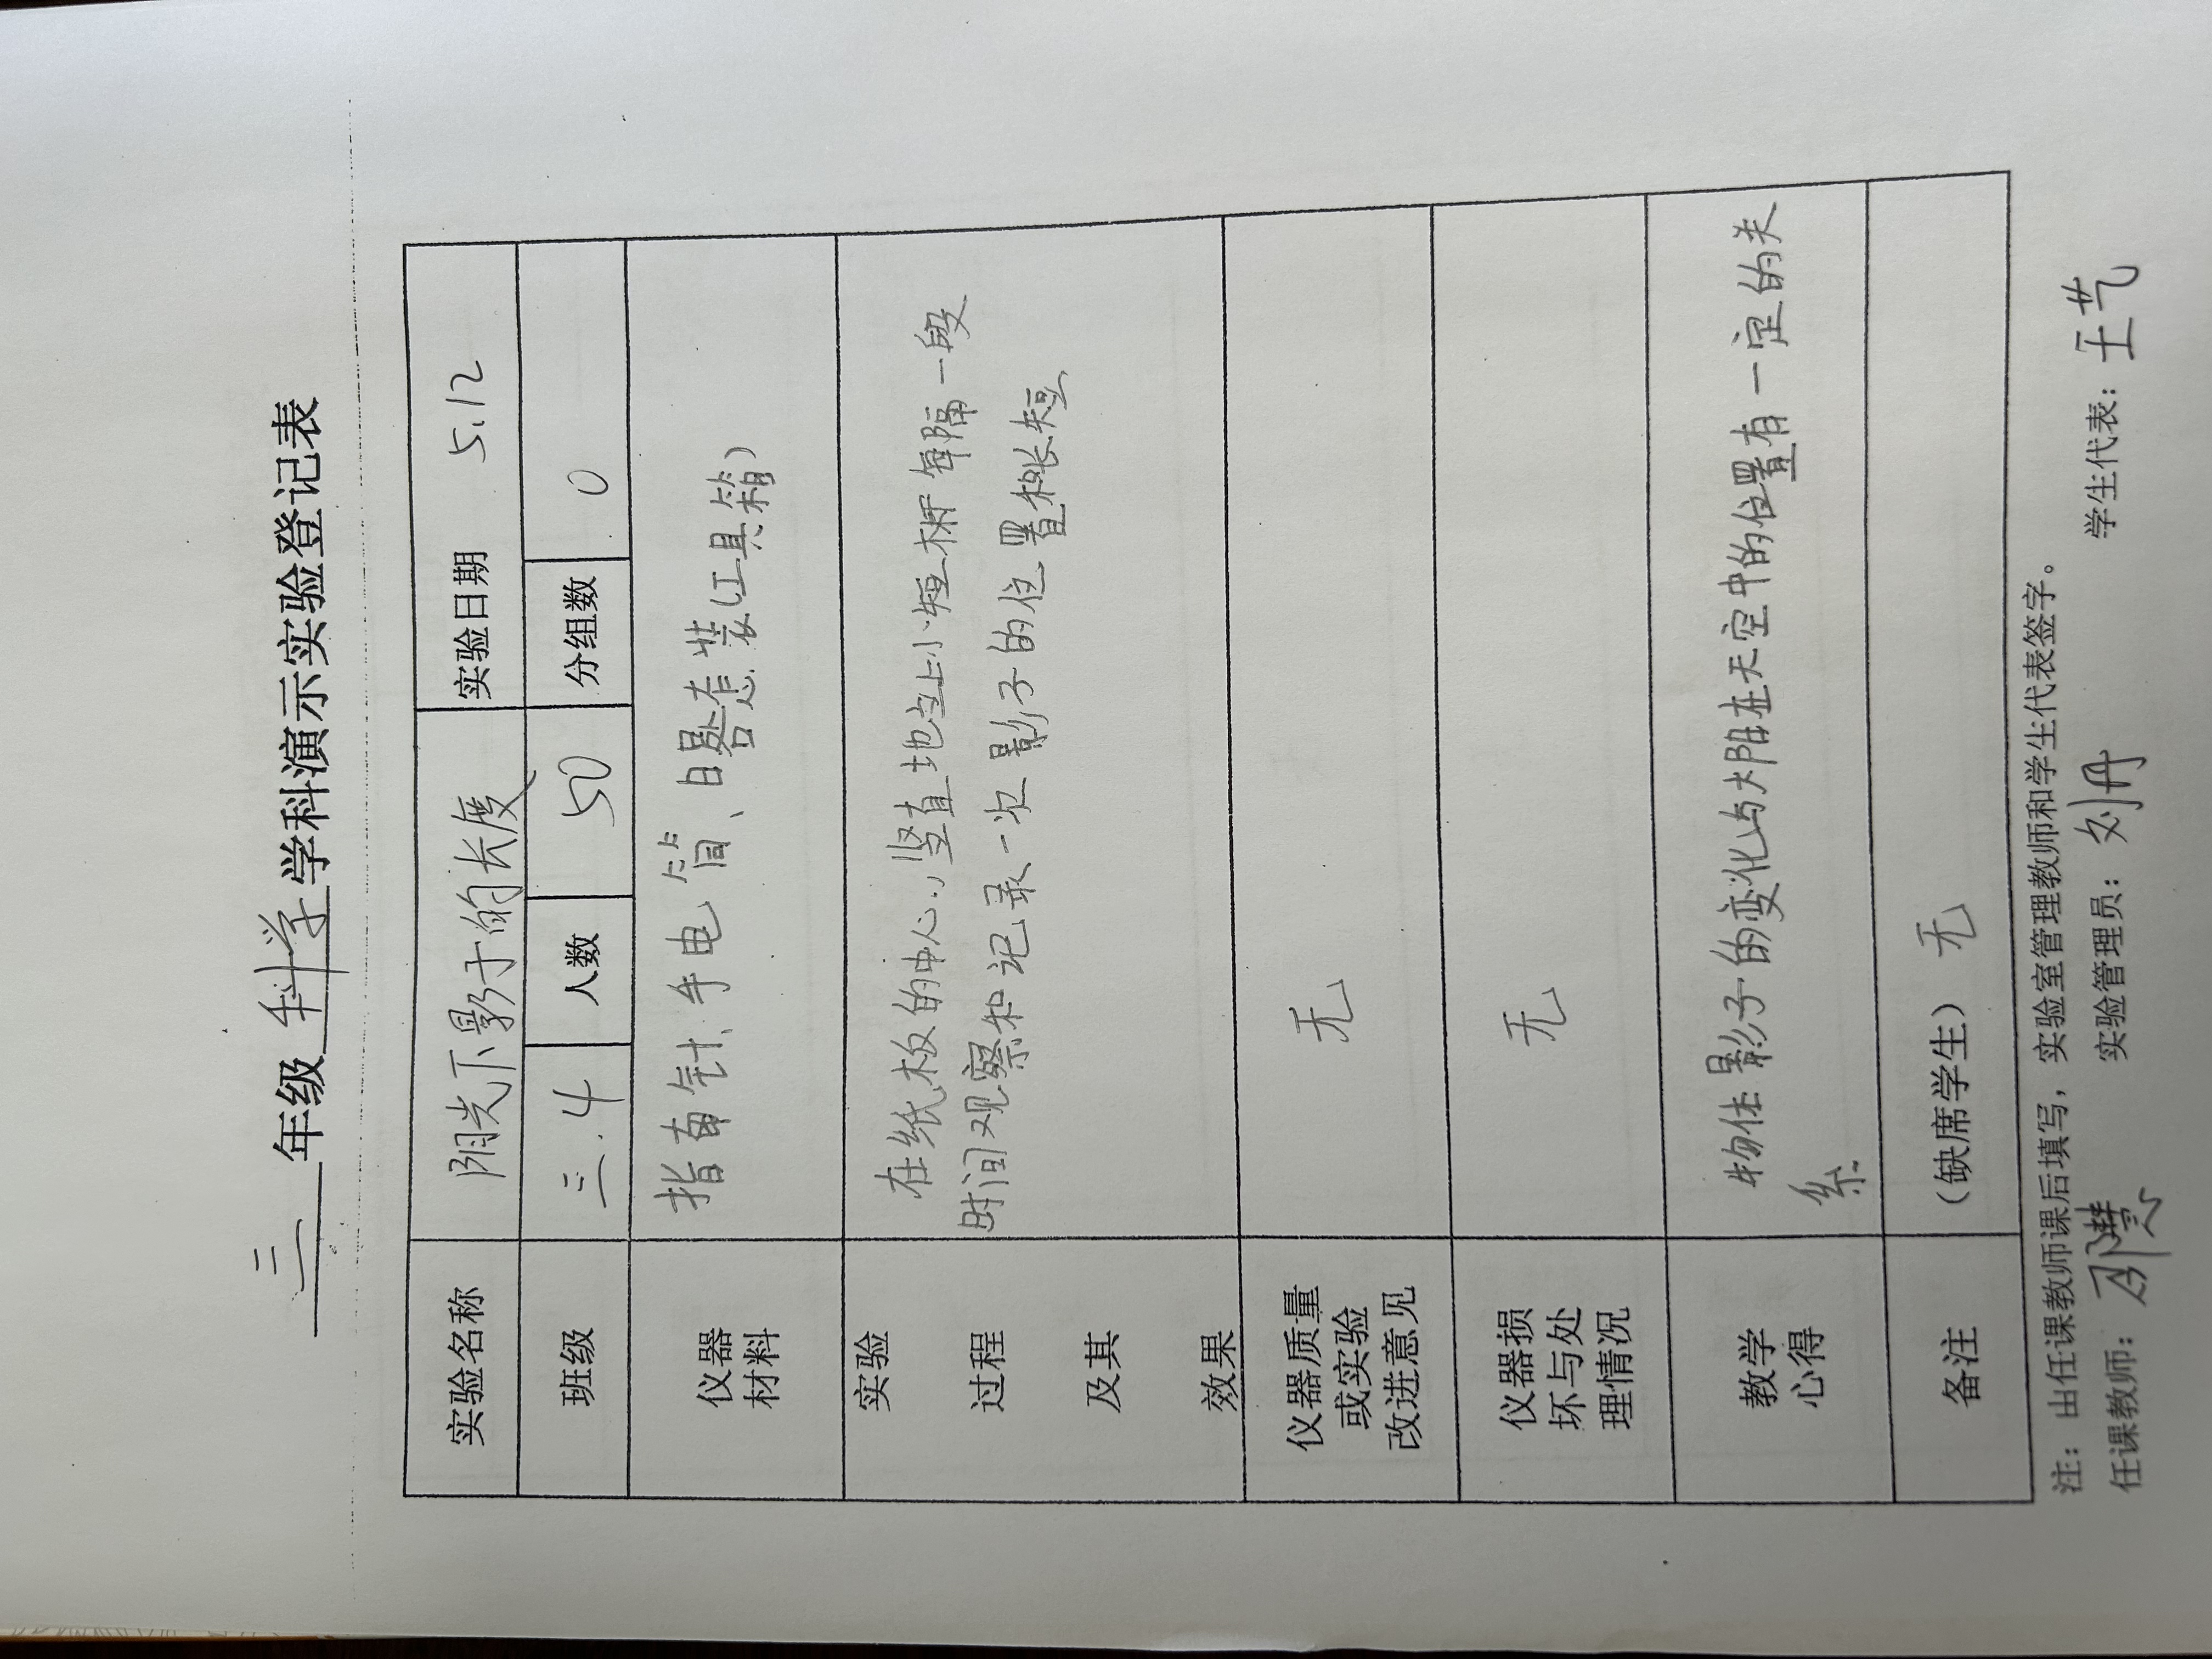 三 年级 科学 学科演示实验登记表
实验名称 阳光下影子的长度 实验日期 5.12
班级 三.4 人数 50 分组数 0
仪器
材料
指南针、手电筒、日晷 套装(工具箱)
实验
过程
及其
效果
在纸板的中心,竖直地立上小短杆 每隔一段
时间观察和记录一次影子的位置和长短
仪器质量
或实验
改进意见
无
仪器损
坏与处
理情况
无
教学
心得
物体影子的变化与太阳在天空中的位置有一定的关
系.
备注 (缺席学生) 无
注:由任课教师课后填写,实验室管理教师和学生代表签字。
任课教师: 实验管理员: 刘丹 学生代表: 王艺